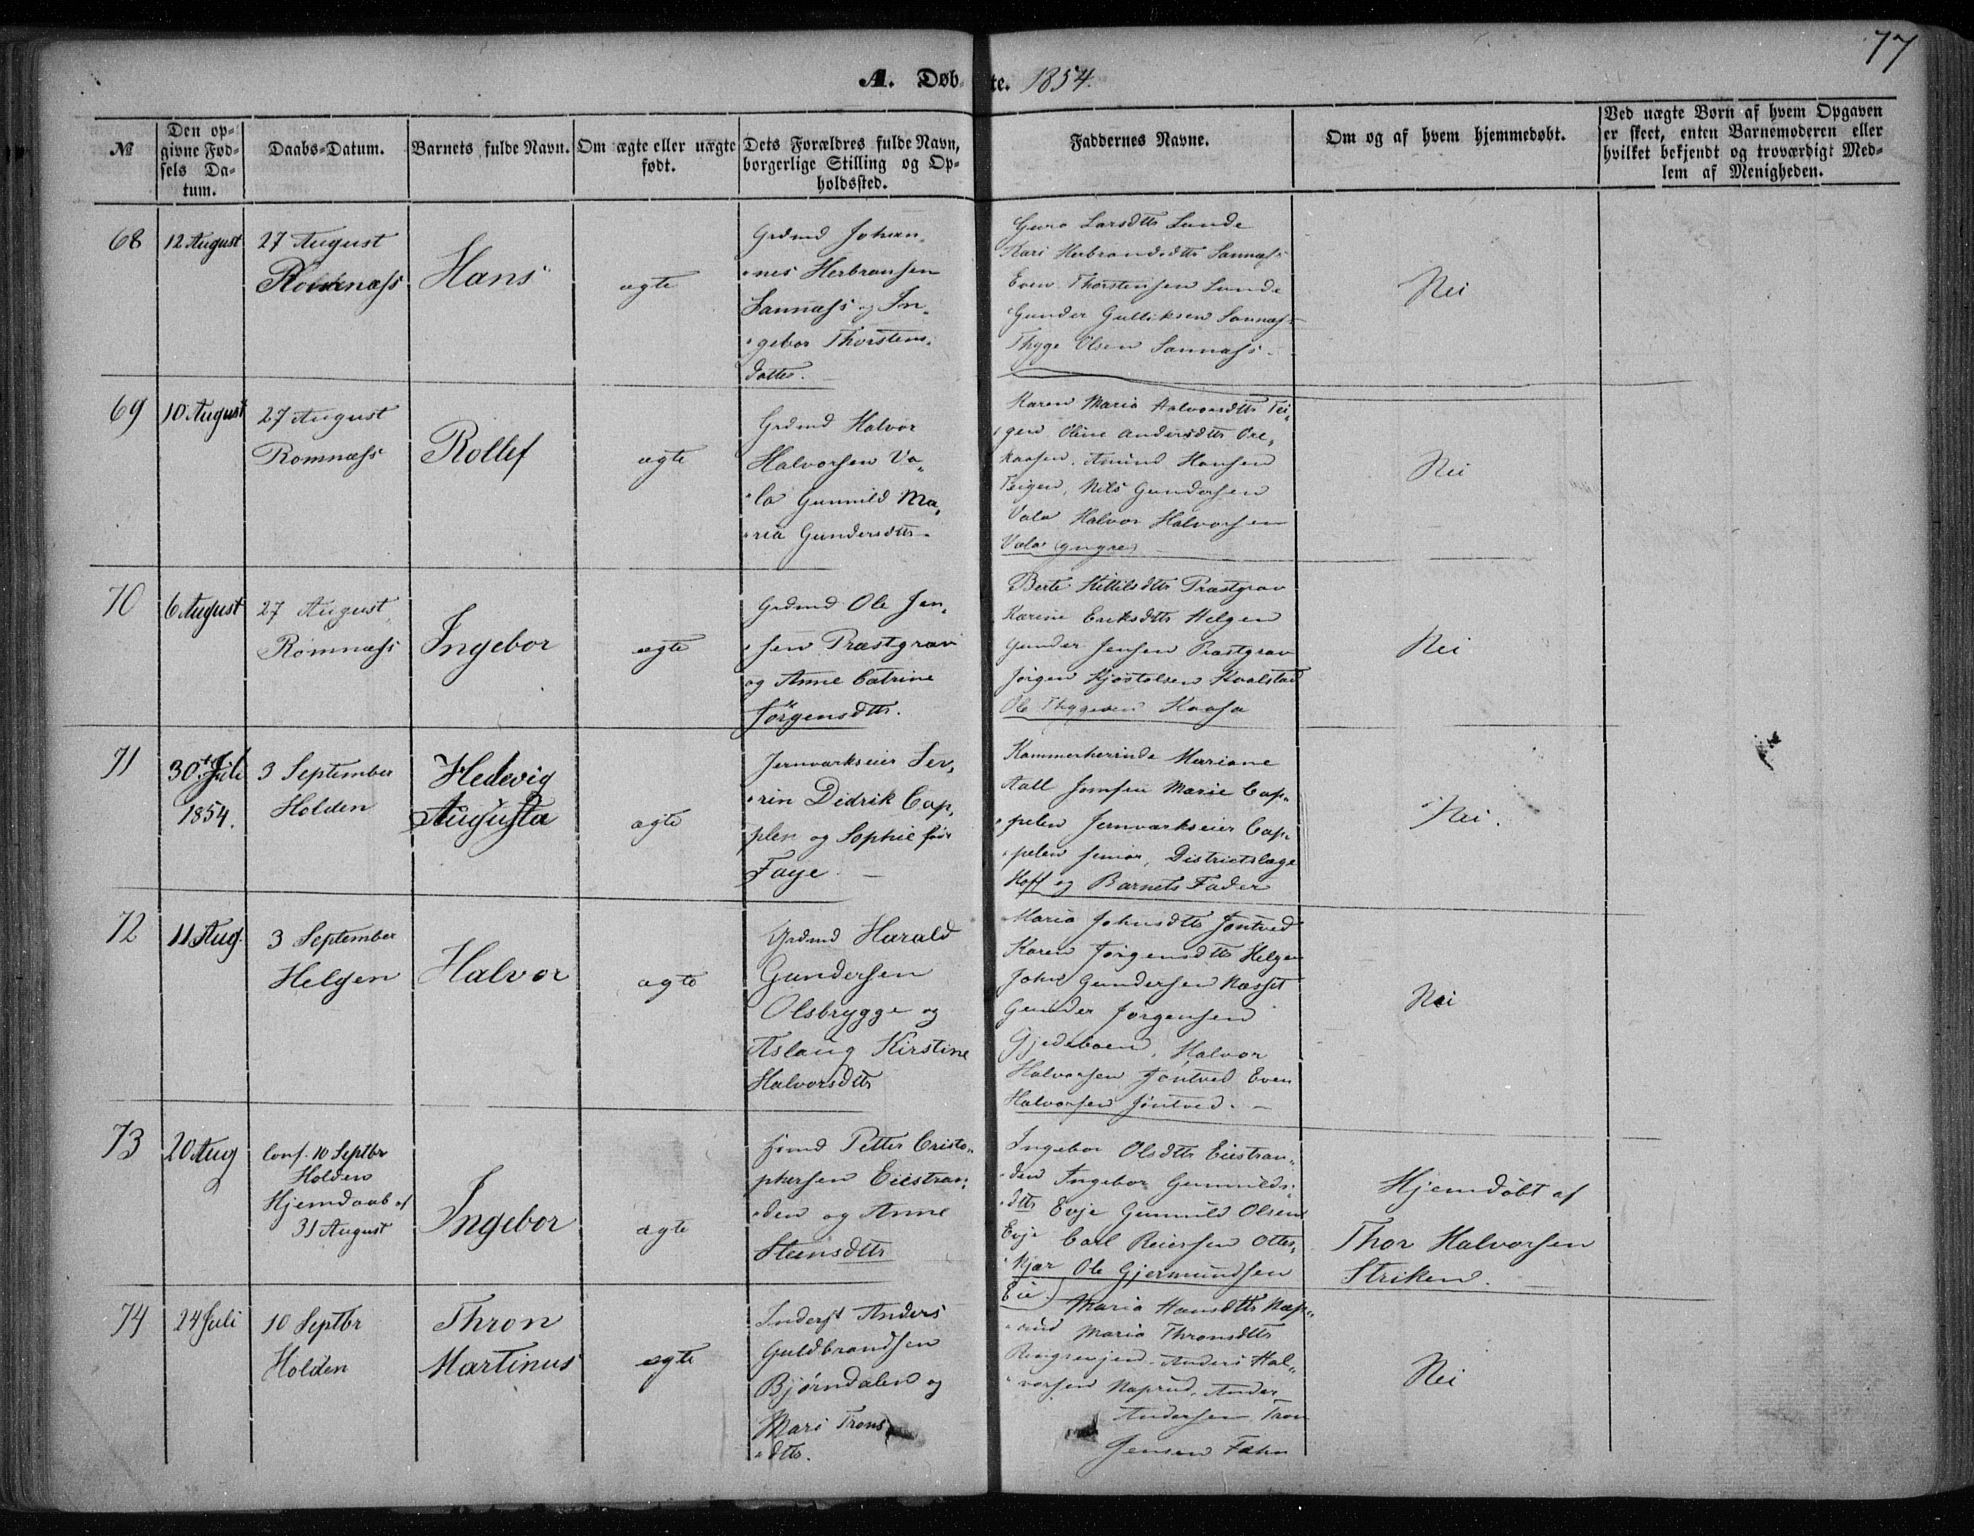 77
A. Døbte. 1854.
№
Den opgivne Fødsels Datum.
Daabs-Datum.
Barnets fulde Navn.
Om ægte eller uægte født.
Dets Forældres fulde Navn, borgerlige Stilling og Opholdssted.
Faddernes Navne.
Om og af hvem hjemmedøbt.
Ved uægte Børn af hvem Opgaven er skeet, enten Barnemoderen eller hvilket bekjendt og troværdigt Medlem af Menigheden.
68
12 August
27 August
Romnæss
Hans
ægte
Grdmd Johan-
nes Herbransen
Sannæss og In-
gebor Thorstens-
datter.
Guro Larsdtt Lunde
Kari Herbrandsdtt Sannæss
Even Thorstensen Lunde
Gunder Gulliksen Sannæss
Thyge Olsen Sannæss
Nei
69
10 August
27 August
Romnæss
Rollef
ægte
Grdmd Halvor
Halvorsen Va-
la Gunnild Ma-
ria Gundersdtt
Karen Maria Halvorsdtt Tei-
gen Oline Andersdtt Ore-
kaasen, Amund Hansen
Teigen, Nils Gundersen
Vala Halvor Halvorsen
Vala (yngre)
Nei
70
6 August
27 August
Romnæss
Ingebor
ægte
Grdmd Ole Jen-
sen Præstgrav
og Anne Catrine
Jörgensdtt.
Berte Kittilsdtt Præstgrav
Karine Eriksdtt Helgen
Gunder Jensen Præstgrav
Jörgen Kjöstolsen Kvalstad
Ole Thygesen Kaasa
Nei
71
30te Juli
1854.
3 September
Holden
Hedevig
Augusta
ægte
Jernværkseier Se-
rin Didrik Cap-
plen og Sophie föd
Faye
Kammerherinde Mariane
Aall Jomfru Marie Cap-
pelen Jernværkseier Cap-
pelen senior, Districtslæge
Hoff og Barnets Fader
Nei.
72
11 Aug.
3 September
Helgen
Halvor
ægte
Grdmd Harald
Gundersen
Olsbrygge og
Aslaug Kirstine
Halvorsdtt
Maria Johnsdtt Jöntved
Karen Jörgensdtt Helgen
John Gundersen Næsset
Gunder Jörgensen
Gjedeboen, Halvor
Halvorsen Jöntved Even
Halvorsen Jöntved.
Nei
73
20 Aug
Conf. 10 Septbr
Holden
Hjemdaab af
31 August
Ingebor
ægte
Petter Cristo-
phersen Eiestran-
den og Anne
Steensdtt
Ingebor Olsdtt Eiestran-
den Ingebor Gunnulds-
dtt Eeje Gunnuld Olsen
Eeje Carl Reiersen Otter-
kjær Ole Gjermundsen
Eie
Hjemdöbt af
Thor Halvorsen
Striken.
74
24 Juli
10 Septbr
Holden
Thron
Martinus
ægte
Inderst Anders
Guldbrandsen
Björndalen og
Mari Trons
dtt.
Maria Hansdtt Nap-
rud Maria Thronsdtt
Anders Hal-
vorsen Naprud, Ander
Andersen Tron
Jensen Fæhn
Nei